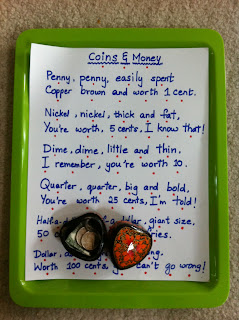 Coins & Money
Penny, penny, easily spent
Copper brown and worth 1 cent.
Nickel, nickel, thick and fat,
You're worth, 5 cents, I know that!
Dime, dime, little and thin,
I remember, you're worth 10.
Quarter, quarter, big and bold,
You're worth 25 cents, I'm told!
giant size,
50
Dollar,
Worth 100 cents, can't go wrong!